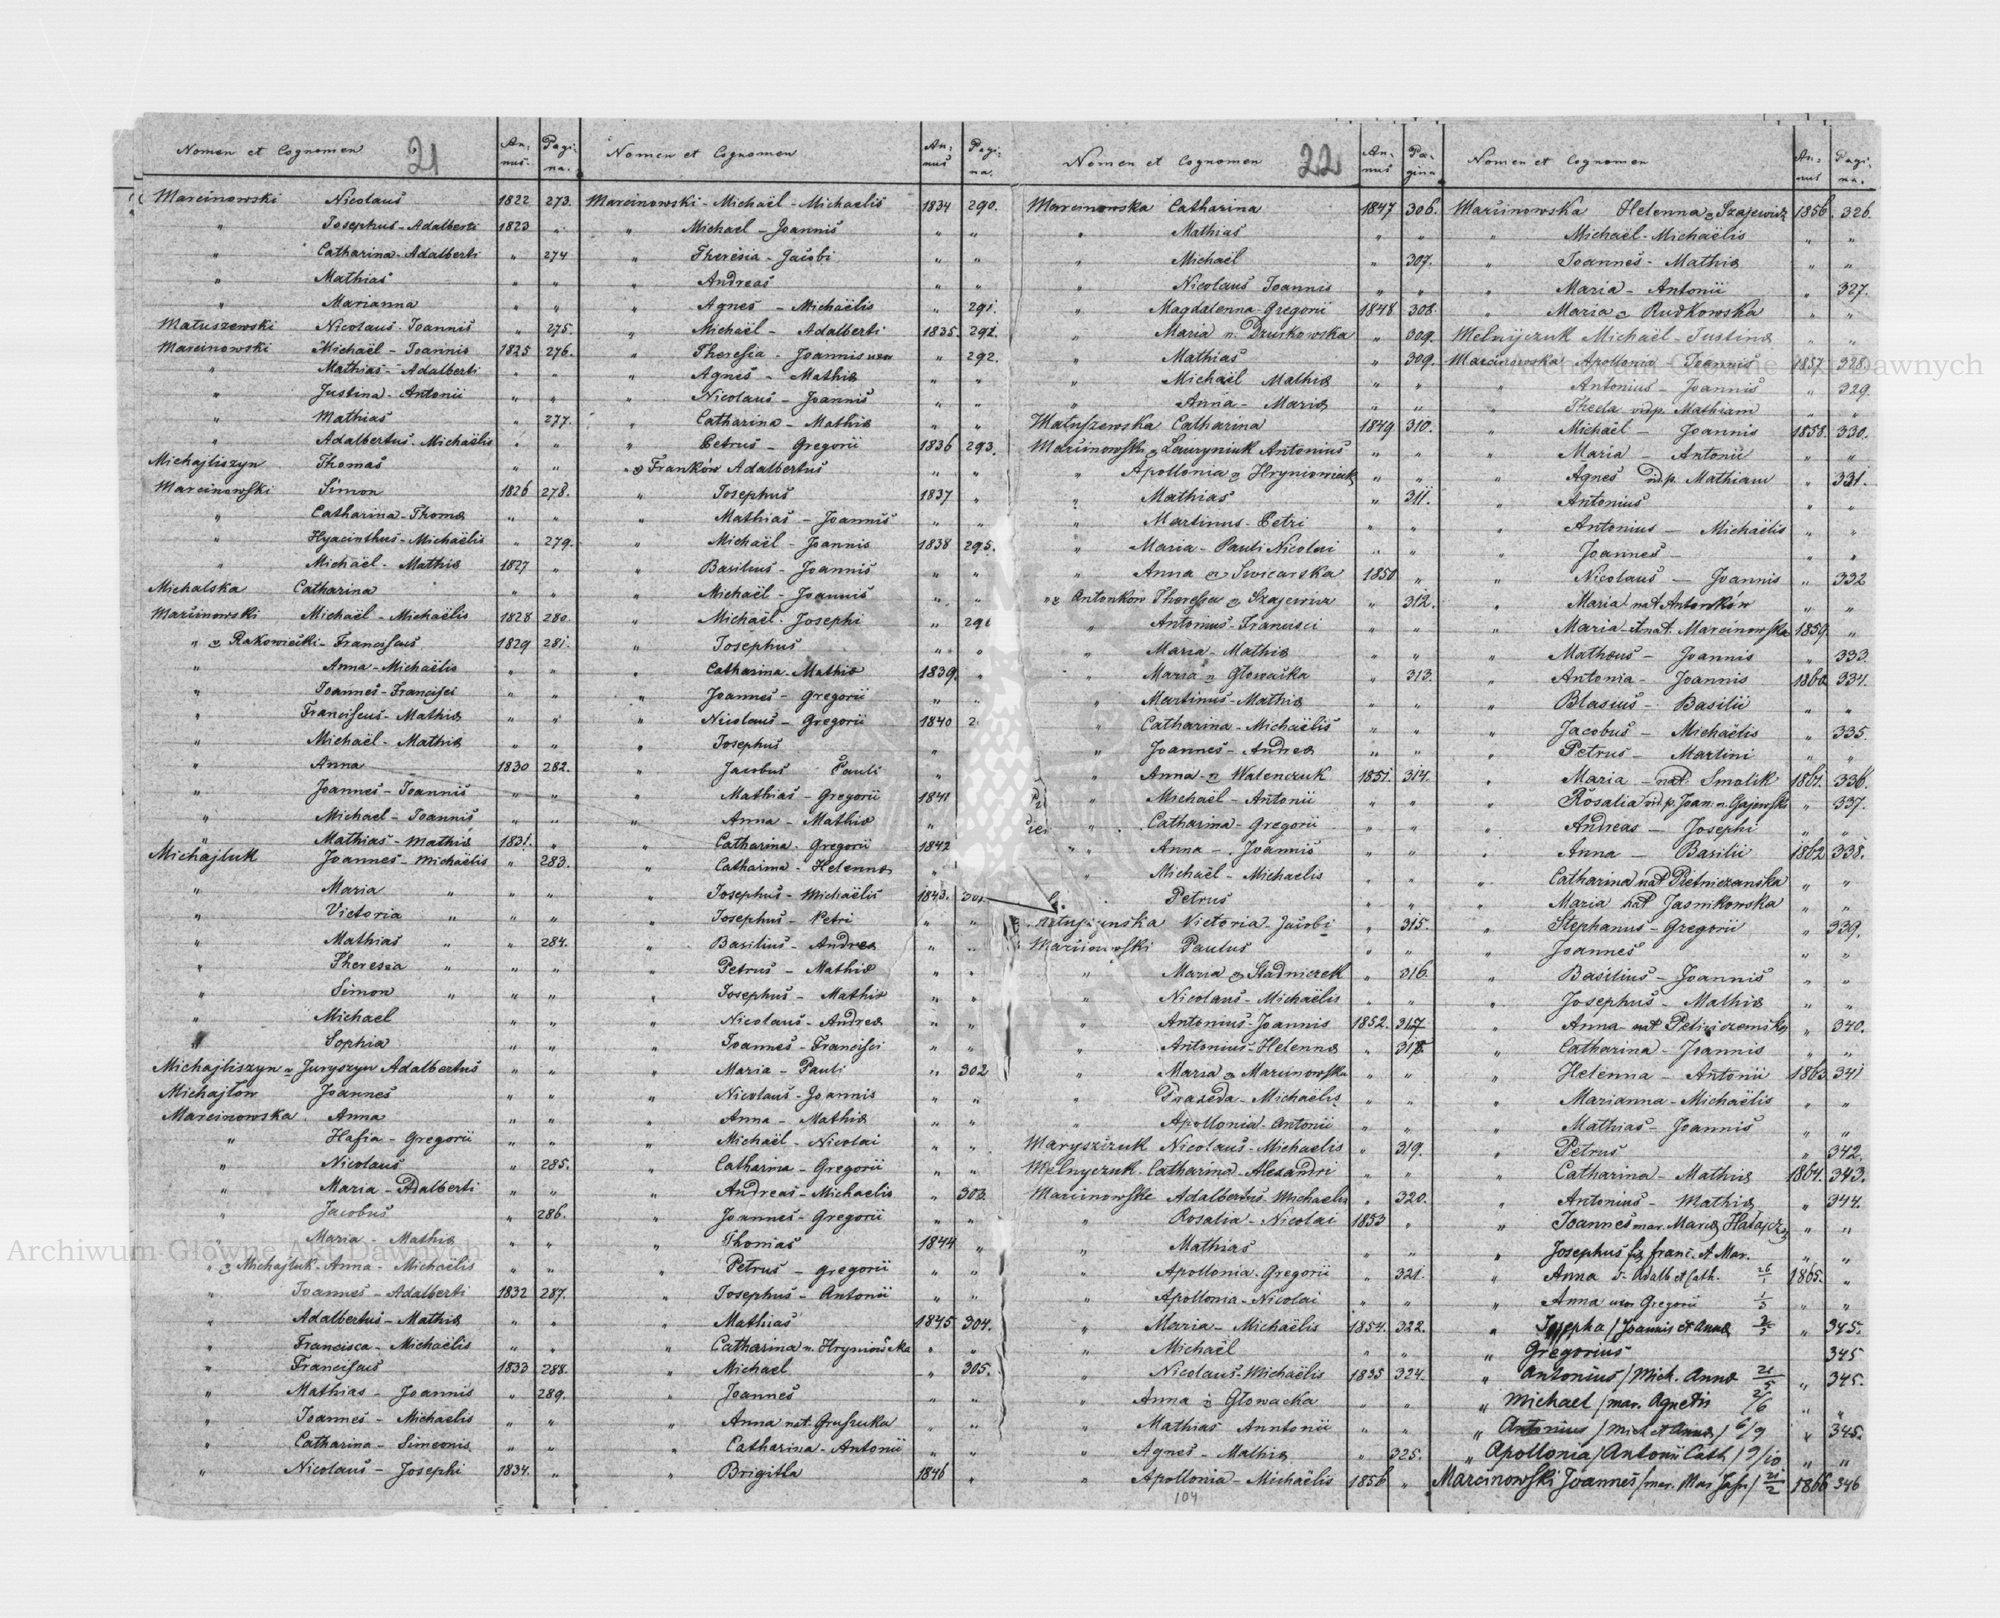 Nomen et Cognomen 21 An:nus. Pagi:na.
Marcinowski Nicolaus 1822 273.
" Josephus - Adalberti 1823 "
" Catharina - Adalberti " 274
" Mathias " "
" Marianna " "
Matuszewski Nicolaus - Joannis " 275.
Marcinowski Michaël - Joannis 1825 276.
" Mathias - Adalberti " "
" Justina - Antonii " "
" Mathias " 277.
" Adalbertus - Michaëlis " "
Michajliszyn Thomas " "
Marcinowski Simon 1826 278.
" Catharina - Thomæ " "
" Hyacinthus - Michaëlis " 279.
" Michaël - Mathiæ 1827 "
Michalska Catharina " "
Marcinowski Michaël - Michaëlis 1828 280.
" Rakowiecki - Franciscus 1829 281.
" Anna - Michaëlis " "
" Joannes - Francisci " "
" Franciscus - Mathiæ " "
" Michaël - Mathiæ " "
" Anna 1830 282.
" Joannes - Joannis " "
" Michael - Joannis " "
" Mathias - Mathiæ 1831. "
Michajluk Joannes - Michaëlis " 283.
" Maria " " "
" Victoria " " "
" Mathias " " 284.
" Theresia " " "
" Simon " " "
" Michael " "
" Sophia " "
Michajliszyn Juryszyn Adalbertus " "
Michajłow Joannes " "
Marcinowska Anna " "
" Hafia - Gregorii " "
" Nicolaus " 285.
" Maria - Adalberti " "
" Jacobus " 286.
" Maria - Mathiæ " "
" Michajluk - Anna - Michaëlis " "
" Joannes - Adalberti 1832 287.
" Adalbertus - Mathiæ " "
" Francisca - Michaëlis " "
" Franciscus 1833 288.
" Mathias - Joannis " 289.
" Joannes - Michaelis " "
" Catharina - Simeonis " "
" Nicolaus - Josephi 1834. "
Nomen et Cognomen An:nus Pagi:na.
Marcinowski - Michaël - Michaelis 1834 290.
" Michael - Joannis " "
" Theresia - Jacobi " "
" Andreas " "
" Agnes - Michaëlis " 291.
" Michaël - Adalberti 1835. 291.
" Theresia - Joannis uxor " 292.
" Agnes - Mathiæ " "
" Nicolaus - Joannis " "
" Catharina - Mathiæ " "
" Petrus - Gregorii 1836 293.
" Franków Adalbertus " "
" Josephus 1837 "
" Mathias - Joannis " "
" Michaël - Joannis 1838 295.
" Basilius - Joannis " "
" Michaël - Joannis " "
" Michaël - Josephi "
" Josephus " "
" Catharina - Mathiæ 1839. "
" Joannes - Gregorii " "
" Nicolaus - Gregorii 1840
" Josephus "
" Jacobus Pauli "
" Mathias - Gregorii 1841
" Anna - Mathiæ "
" Catharina - Gregorii 1842
" Catharina - Helennæ "
" Josephus - Michaëlis 1843.
" Josephus - Petri " "
" Basilius - Andreæ " "
" Petrus - Mathiæ " "
" Josephus - Mathiæ " "
" Nicolaus - Andreæ " "
" Joannes - Francisci " "
" Maria - Pauli " 302
" Nicolaus - Joannis " "
" Anna - Mathiæ " "
" Michaël - Nicolai " "
" Catharina - Gregorii " "
" Andreas - Michaelis " 303.
" Joannes - Gregorii " "
" Thomas 1844 "
" Petrus - Gregorii " "
" Josephus - Antonii " "
" Mathias 1845 304.
" Catharina n. Hryniowska " "
" Michael " 305.
" Joannes " "
" Anna nat. Gruszuka " "
" Catharina - Antonii " "
" Brigitta 1846 "
Nomen et Cognomen 22 An:nus Pa:gina
Marcinowska Catharina 1847 306.
" Mathias " "
" Michaël " 307.
" Nicolaus Joannis " "
" Magdalenna - Gregorii 1848 308.
" Maria n. Druskowska " 309.
" Mathias " 309.
" Michaël Mathiæ " "
" Anna - Mariæ " "
Matuszewska Catharina 1849 310.
Marcinowski Lawryniuk Antonius
" Apollonia Hryniowiecka " "
" Mathias " 311.
" Martinus - Petri " "
" Maria - Pauli Nicolai " "
" Anna Swicarska 1850 "
" Antonków Theresia Szajewicz " 312.
" Antonius - Francisci " "
" Maria - Mathiæ " "
" Maria Głowacka " 313.
" Martinus - Mathiæ " "
" Catharina - Michaëlis " "
" Joannes - Andreæ " "
" Anna Walenczuk 1851. 314.
" Michaël - Antonii " "
" Catharina - Gregorii " "
" Anna - Joannis " "
" Michaël - Michaelis " "
Petrus " "
Victoria - Jacobi " 315.
Marcinowski Paulus " "
" Maria Stadniczek " 316.
" Nicolaus - Michaëlis " "
" Antonius - Joannis 1852. 317.
" Antonius - Helennæ " 318.
" Maria Marcinowska " "
" Praxeda - Michaelis " "
" Apollonia - Antonii " "
Maryszczuk Nicolaus - Michaelis " 319.
Melnyczuk Catharina - Alexandri " "
Marcinowski Adalbertus - Michaelis " 320.
" Rosalia - Nicolai 1853 "
" Mathias " "
" Apollonia - Gregorii " 321.
" Apollonia - Nicolai " "
" Maria - Michaëlis 1854. 322.
" Michaël " "
" Nicolaus - Michaëlis 1855 324.
" Anna Głowacka " "
" Mathias Anntonii " "
" Agnes - Mathiæ " 325.
" Apollonia - Michaëlis 1856 "
104
Nomen et Cognomen An:nus Pagi:na.
Marcinowska Helenna Szajewicz 1856. 326.
" Michaël - Michaëlis " "
" Joannes - Mathiæ " "
" Maria - Antonii " 327.
" Maria Rudkowska " "
Melnyczuk Michaël - Justinæ " "
Marcinowska Apollonia Joannis 1857 328.
" Antonius - Joannis " 329.
" Thecla vid.p. Mathiam " "
" Michaël - Joannis 1858. 330.
" Maria - Antonii " "
" Agnes vid.p. Mathiam " 331.
" Antonius " "
" Antonius - Michaëlis " "
" Joannes - " "
" Nicolaus - Joannis " 332
" Maria nat Antonków " "
" Maria nat. Marcinowska 1859. "
" Matheus - Joannis " 333.
" Antonia - Joannis 1860 334.
" Blasius - Basilii " "
" Jacobus - Michaëlis " 335.
" Petrus - Martini " "
" Maria - nat. Smolik 1861. 336.
" Rosalia vid.p. Joan. n. Gajewski " 337.
" Andreas - Josephi " "
" Anna - Basilii 1862 338.
" Catharina nat Pietniczanska " "
" Maria nat Jasnikowska " "
" Stephanus - Gregorii " 339.
" Joannes " "
" Basilius - Joannis " "
" Josephus - Mathiæ " "
" Anna nat " 340.
" Catharina - Joannis " "
" Helenna - Antonii 1863 341
" Marianna - Michaëlis " "
" Mathias - Joannis " "
" Petrus " 342.
" Catharina - Mathiæ 1864. 343.
" Antonius - Mathiæ " 344.
" Joannes mar. Mariæ " "
" Josephus franc. et Mar. " "
" Anna Adalb et Cath. 26/1 1865. "
" Anna uxor Gregorii 1/3 " "
" Josepha / Joannis et Annæ " 345.
" Gregorius 345
" Antonius / Mich. Annæ 21/5 " 345.
" Michael / mar. Agnetis " "
" Antonius / Mich et Annæ / 6/9 " 345.
" Apollonia / Antonii Cath / 9/10 " "
Marcinowski Joannes / mar. 21/2 1866 346
Archiwum Główne Akt Dawnych
Archiwum Główne Akt Dawnych